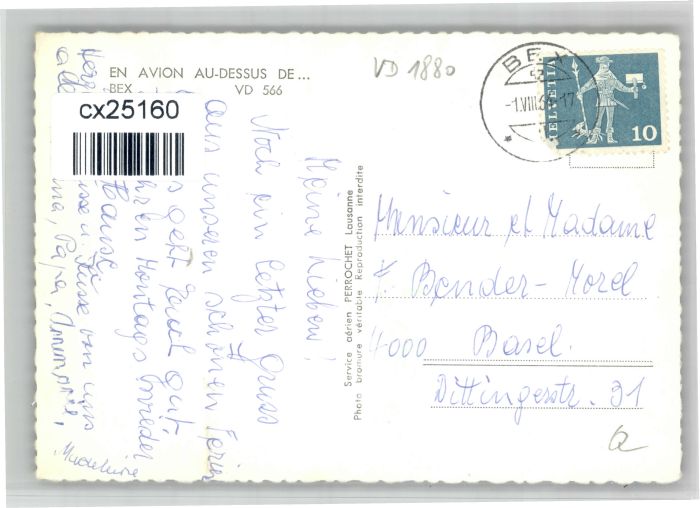 EN AVION AU-DESSUS DE...
BEX VD 566
VD 1880
cx25160
BEX
-1.VIII.6 -17
HELVETIA
10
Meine Lieben!
Noch ein letzter Gruss
aus unseren schönen Ferien
s geht Euch gut,
Montags wieder
Hause
Küsse von uns
Papa,
Madeleine
Service aérien PERROCHET Lausanne
Photo bromure véritable Reproduction interdite
Monsieur et Madame
F. Bender-Morel
4000 Basel.
Dittingerstr. 31
a